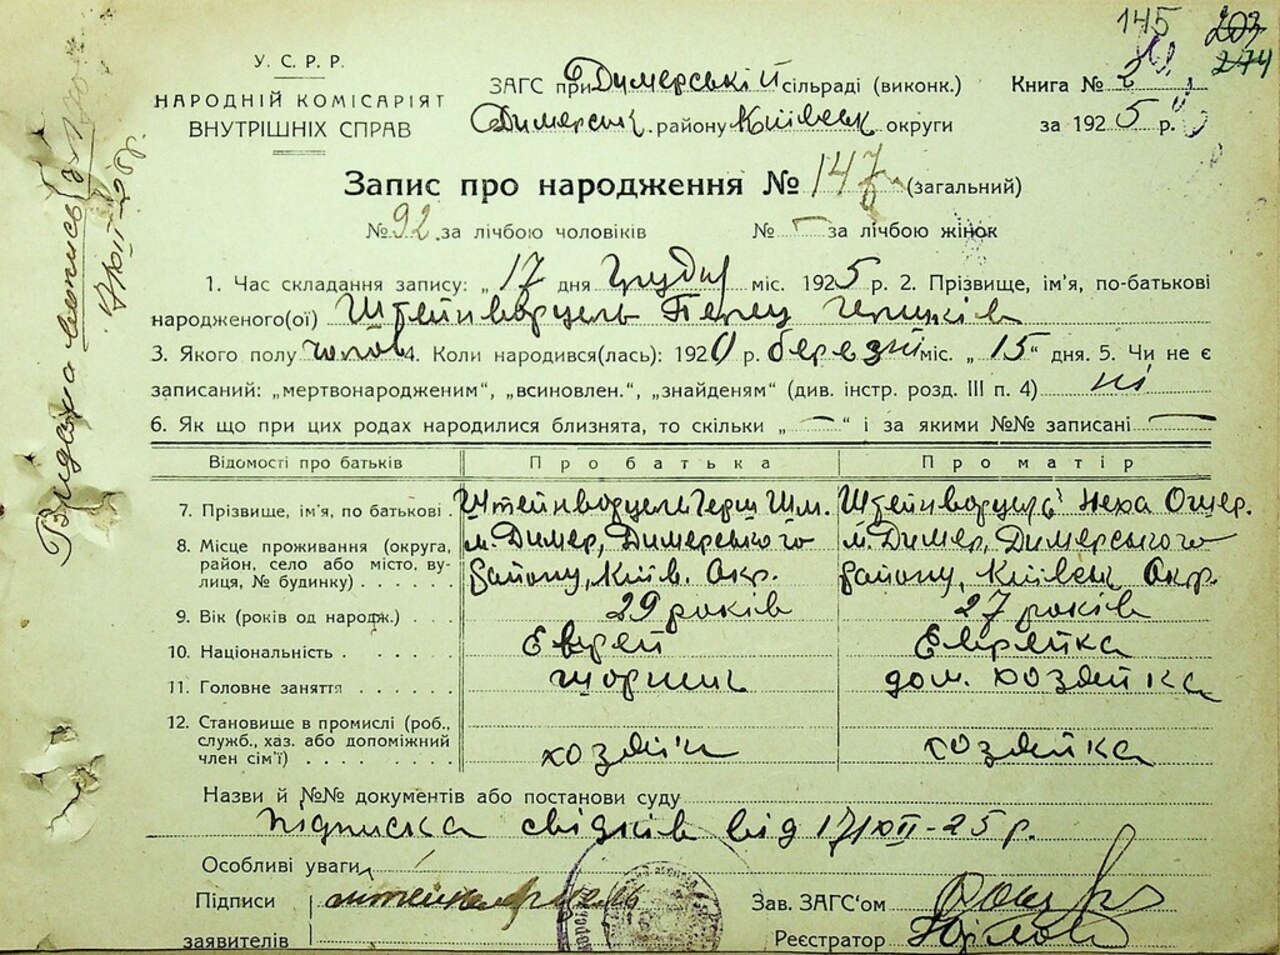 145 203
274
У. С. Р. Р.
НАРОДНІЙ КОМІСАРІЯТ
ВНУТРІШНІХ СПРАВ
ЗАГС при Димерській сільраді (виконк.)
Димерськ. району Київськ округи
Книга № 2
за 1925 р.
Запис про народження № 147 (загальний)
№ 92 за лічбою чоловіків № — за лічбою жінок
1. Час складання запису: „ 17 дня Грудня міс. 1925 р. 2. Прізвище, ім'я, по-батькові
народженого(ої) Штейнворцель Перец Гершків
3. Якого полу чолов 4. Коли народився(лась): 1920 р. березня міс. „ 15 “ дня. 5. Чи не є
записаний: „мертвонародженим“, „всиновлен.“, „знайденям“ (див. інстр. розд. III п. 4) ні
6. Як що при цих родах народилися близнята, то скільки „ — “ і за якими №№ записані —
Відомості про батьків Про батька Про матір
7. Прізвище, ім'я, по батькові . Штейнворцель Герш Шм. Штейнворцель Неха Ошер.
8. Місце проживання (округа, район, село або місто, вулиця, № будинку) . . . . . м. Димер, Димерського району, Київ. Окр. м. Димер, Димерського району, Київськ Окр.
9. Вік (років од народж.) . . . 29 років 27 років
10. Національність . . . . . . Еврей Еврейка
11. Головне заняття . . . . . . шорник дом. хозяйка
12. Становище в промислі (роб., служб., хаз. або допоміжний член сім'ї) . . . . . . . . хозяїн хозяйка
Назви й №№ документів або постанови суду
підписка свідків від 17/XII-25 р.
Особливі уваги
Підписи
заявителів
Зав. ЗАГС'ом
Реєстратор
Видано выпись